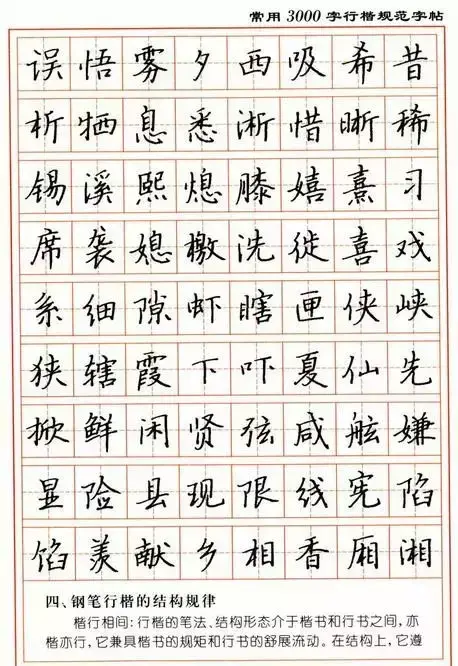 常用 3000 字行楷规范字帖
误悟雾夕西吸希昔
析牺息悉淅惜晰稀
锡溪熙熄膝嬉熹习
席袭媳檄洗徙喜戏
系细隙虾瞎匣侠峡
狭辖霞下吓夏仙先
掀鲜闲贤弦咸舷嫌
显险县现限线宪陷
馅羡献乡相香厢湘
四、钢笔行楷的结构规律
楷行相间：行楷的笔法、结构形态介于楷书和行书之间，亦
楷亦行，它兼具楷书的规矩和行书的舒展流动。在结构上，它遵